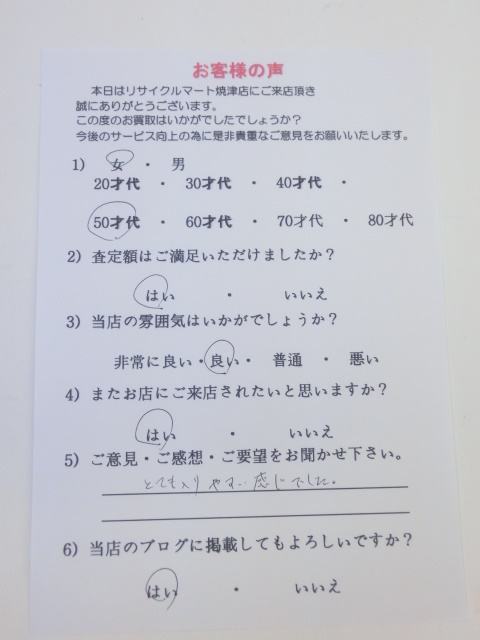 お客様の声
本日はリサイクルマート焼津店にご来店頂き
誠にありがとうございます。
この度のお買取はいかがでしたでしょうか？
今後のサービス向上の為に是非貴重なご意見をお願いいたします。
1) 女 ・ 男
20才代 ・ 30才代 ・ 40才代 ・
50才代 ・ 60才代 ・ 70才代 ・ 80才代
2) 査定額はご満足いただけましたか？
はい ・ いいえ
3) 当店の雰囲気はいかがでしょうか？
非常に良い・良い・ 普通 ・ 悪い
4) またお店にご来店されたいと思いますか？
はい ・ いいえ
5) ご意見・ご感想・ご要望をお聞かせ下さい。
とても入りやすい感じでした。
6) 当店のブログに掲載してもよろしいですか？
はい ・ いいえ